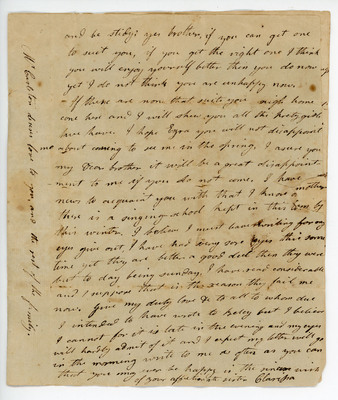 and be stidy; yes brother, if you can get one
to suit you, if you get the right one I think
you will enjoy yourself better then you do now
yet I do not think you are unhappy now
If there are none that suits you nigh home
come here and I will shew you all the pretty girls
here have. I hope Ezra you will not disappoint
me about coming to see me in the spring, I assure you
my Dear brother it will be a great disappoint-
ment to me if you do not come. I have
news to acquaint you with that I know
there is a singing school kept in this by
this winter. I believe I must leave writing for my
eyes give out, I have had very sore eyes this some
time yet they are better a good deal then they were
but to day being sunday I have read considerable
and I suppose that is the reason they fail me
now. Give my duty love &c to all to whom due
I intended to have wrote to but I believe
I cannot for it is late in the evening and my eyes
will hardly admit of it and I expect my letter will go
in the morning write to me as often as you can
that you may ever be happy is the sincere wish
of your affectionate sister Clarissa
Mr Carlton sends love to you, and the rest of the family.